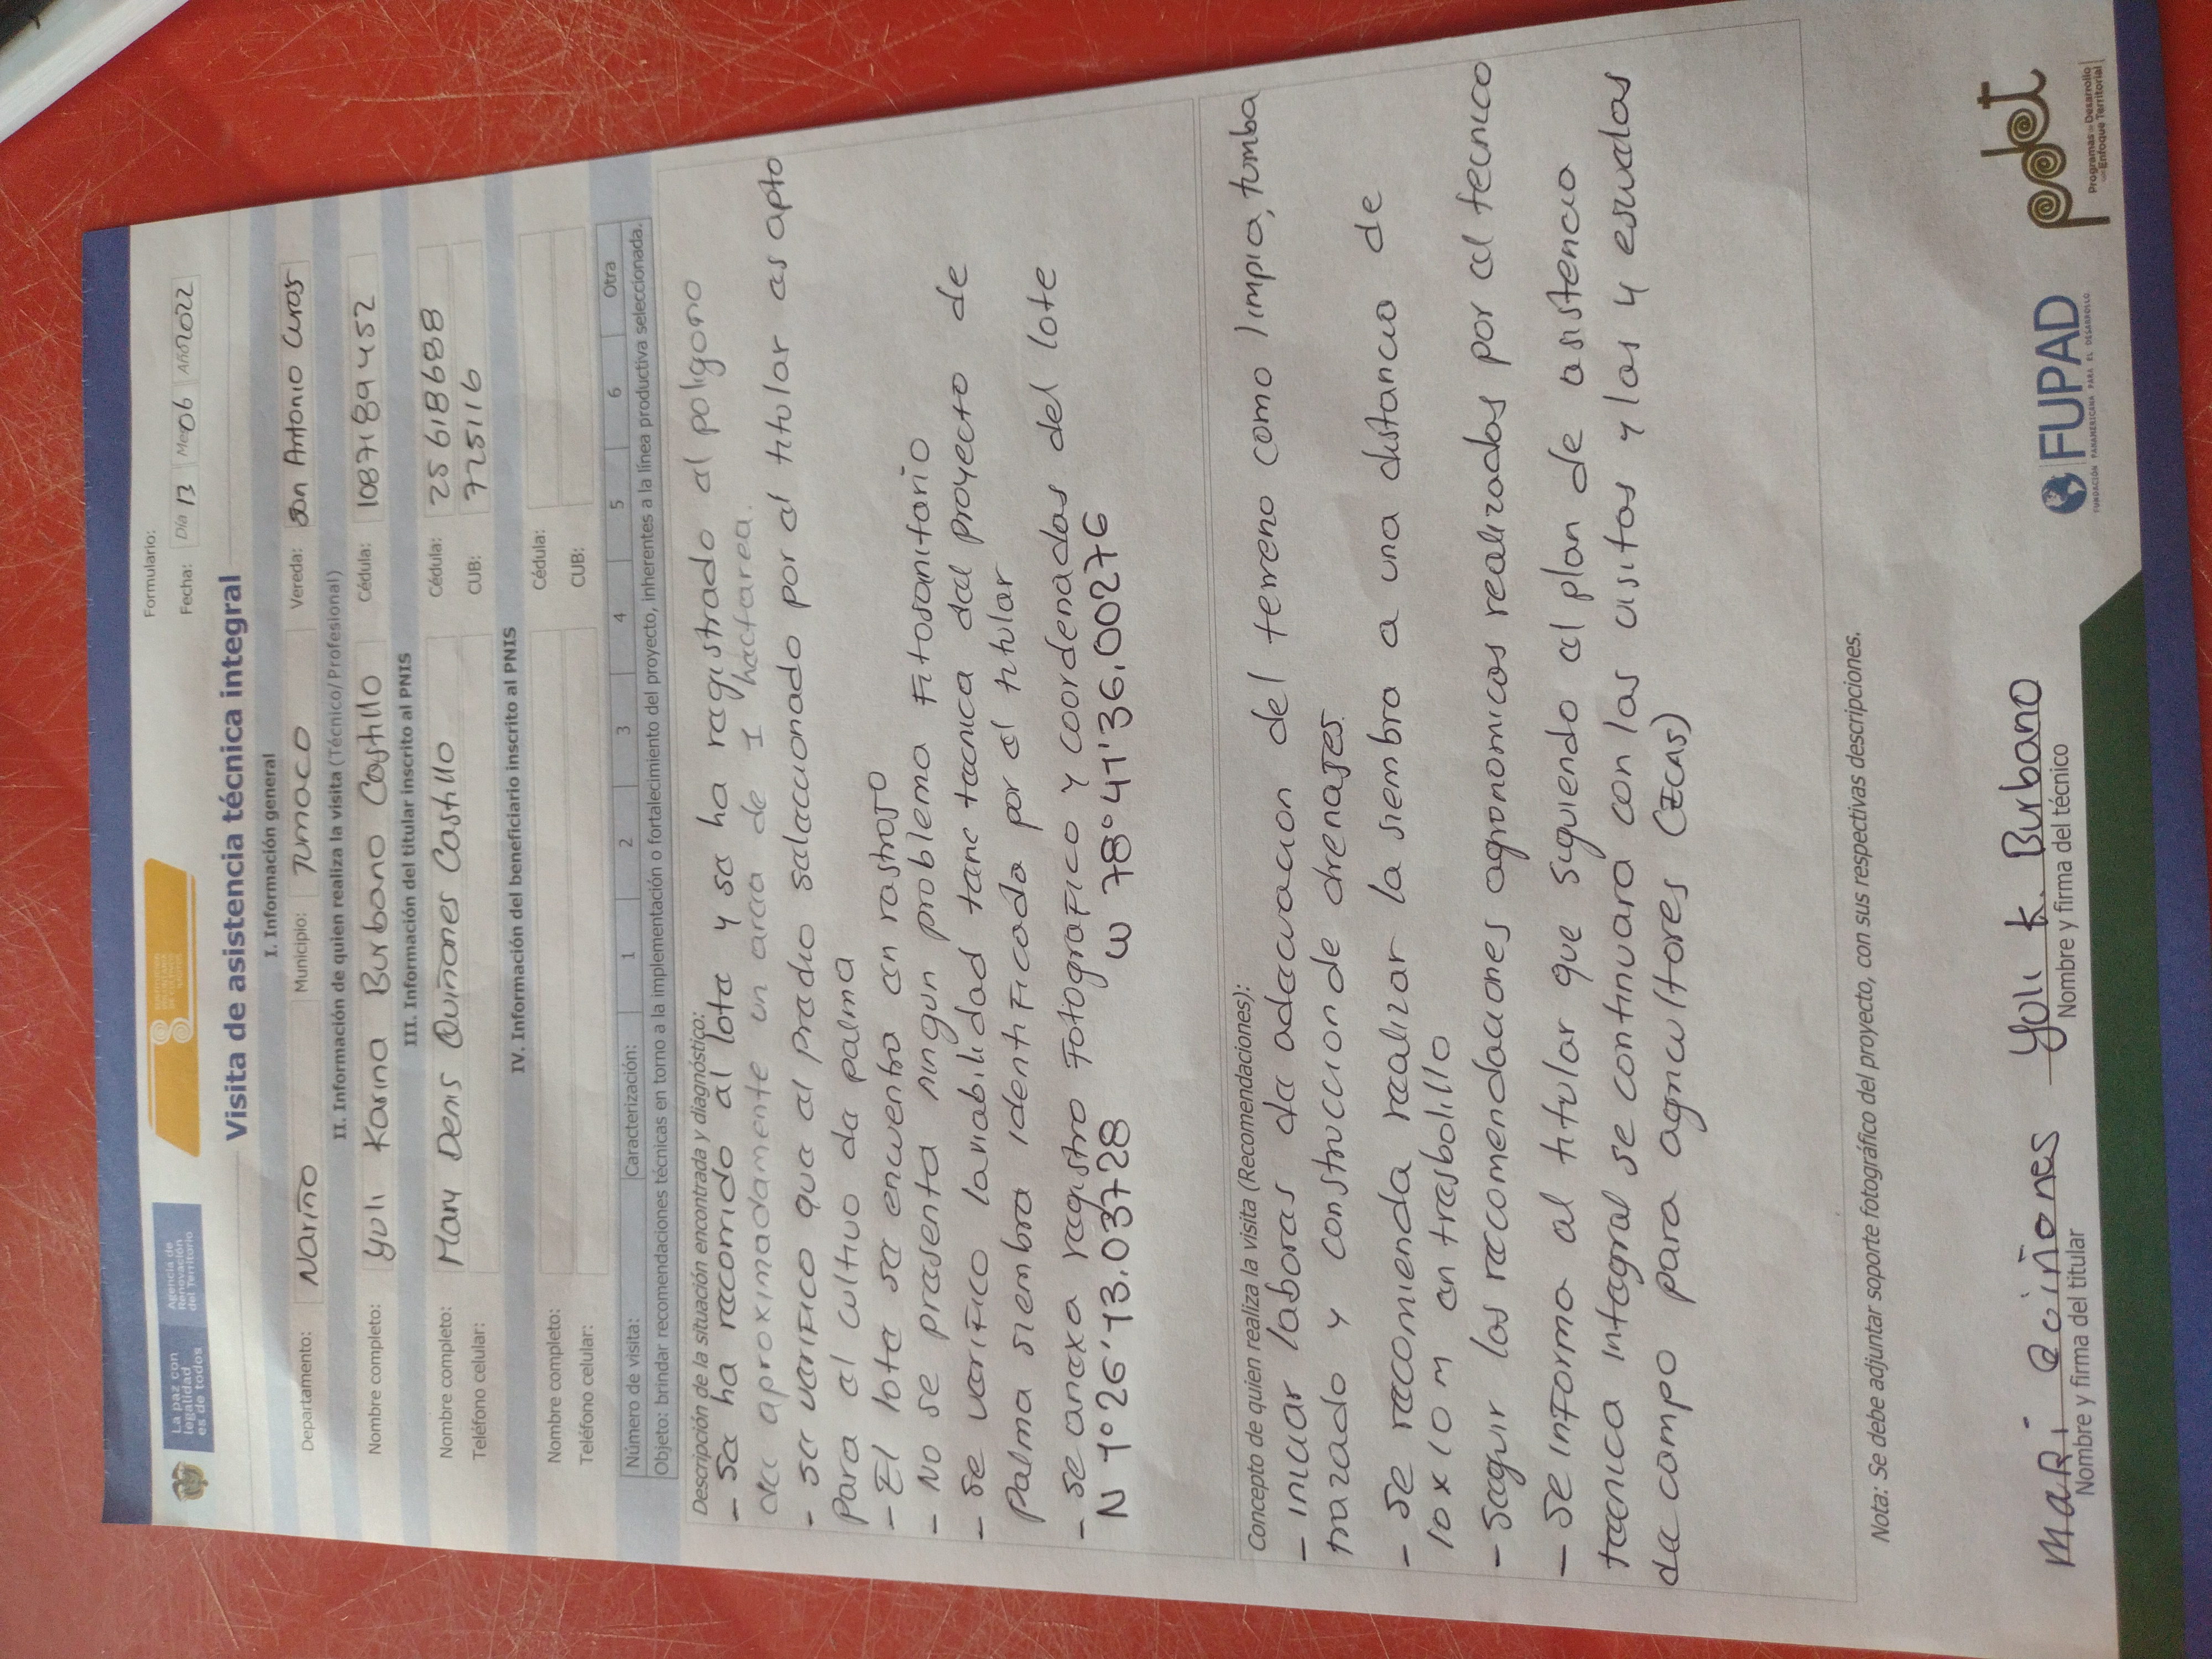 La paz con
legalidad
es de todos
Agencia de
Renovación
del Territorio
Formulario:
Fecha: Día 13 Mes 06 Año 2022
Visita de asistencia técnica integral
I. Información general
Departamento: Nariño Municipio: Tumaco Vereda: San Antonio Curay
II. Información de quien realiza la visita (Técnico/Profesional)
Nombre completo: Yuli Karina Burbano Castillo Cédula: 1087189452
III. Información del titular inscrito al PNIS
Nombre completo: Mary Denis Quiñones Castillo Cédula: 25618688
Teléfono celular: CUB: 725116
IV. Información del beneficiario inscrito al PNIS
Nombre completo: Cédula:
Teléfono celular: CUB:
Número de visita: Caracterización: 1 2 3 4 5 6 Otra
Objeto: brindar recomendaciones técnicas en torno a la implementación o fortalecimiento del proyecto, inherentes a la línea productiva seleccionada.
Descripción de la situación encontrada y diagnóstico:
- Se ha recorrido el lote y se ha registrado el poligono
de aproximadamente un area de 1 hectarea.
- se verifico que el predio seleccionado por el titular es apto
Para el cultivo de palma
- El lote se encuentra en rastrojo
- No se presenta ningun problema Fitosanitario
- se verifico laviabilidad tecnica del proyecto de
Palma siembra identificada por el titular
- se anexa registro Fotografico y coordenadas del lote
N 1°26'13.03728 W 78°41'36.00276
Concepto de quien realiza la visita (Recomendaciones):
- iniciar labores de adecuacion del terreno como limpia, tumba
trazado y construccion de drenajes.
- se recomienda realizar la siembra a una distancia de
10 x 10 m en tresbolillo
- Seguir las recomendaciones agronomicas realizadas por el tecnico
- Se informa al titular que siguiendo el plan de asistencia
tecnica integral se continuara con las visitas y las 4 escuelas
de campo para agricultores (ECAS)
Nota: Se debe adjuntar soporte fotográfico del proyecto, con sus respectivas descripciones.
MaRi Qciñones Yuli K. Burbano
Nombre y firma del titular Nombre y firma del técnico
FUPAD
FUNDACIÓN PANAMERICANA PARA EL DESARROLLO
pdet
Programas de Desarrollo
con Enfoque Territorial